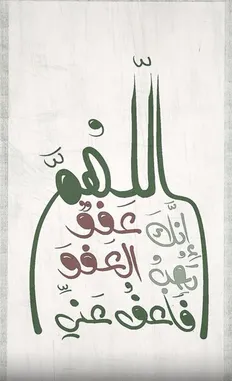 اللهم
إنك عفو
تحب العفو
فاعف عني